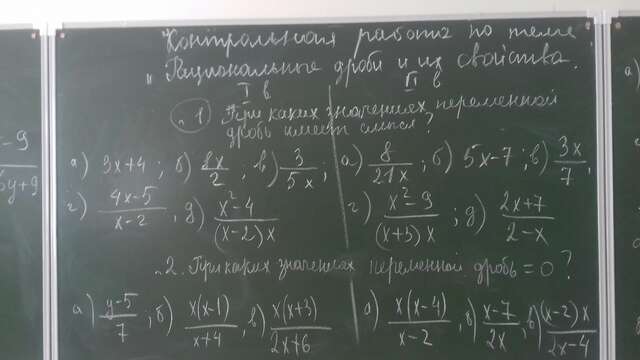 Контрольная работа по теме
„Рациональные дроби и их свойства.
I в II в
№1 При каких значениях переменной
дробь имеет смысл?
а) 3x+4; б) 8x/2, в) 3/5x, а) 8/21x; б) 5x-7; в) 3x/7,
г) 4x-5/x-2, д) x²-4/(x-2)x г) x²-9/(x+3)x; д) 2x+7/2-x
№2. При каких значениях переменной дробь = 0?
а) y-5/7; б) x(x-1)/x+4, в) x(x+3)/2x+6 а) x(x-4)/x-2, б) x-7/2x, в) (x-2)x/2x-4
-9
5y+9
а)